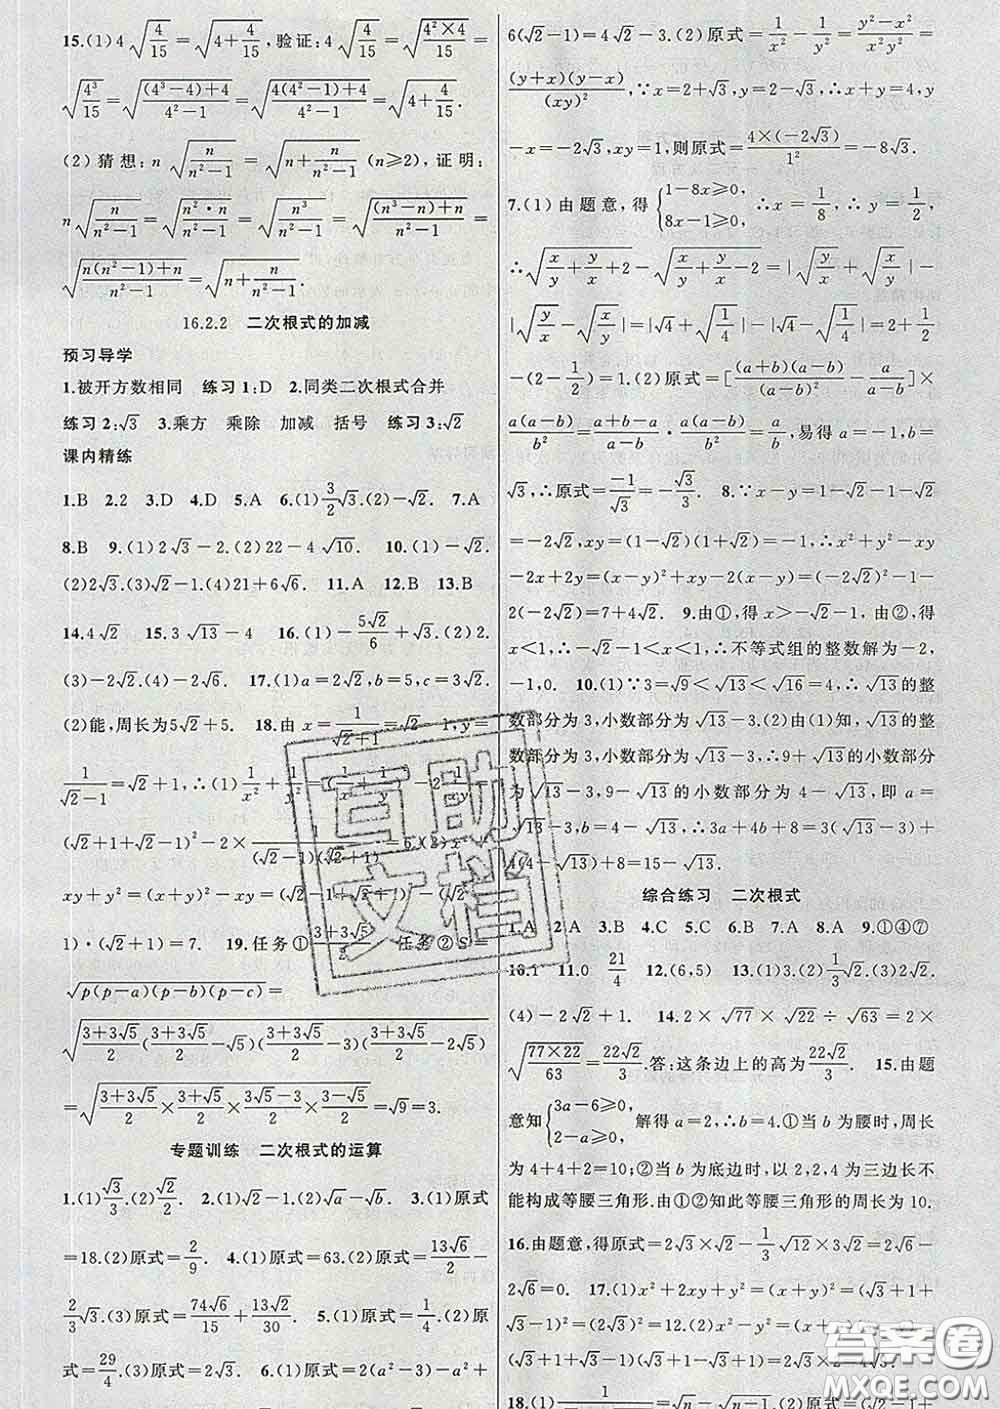 15.(1)4√(4/15)=√(4+4/15),验证:4√(4/15)=√((4²×4)/15)=
√(4³/15)=√(((4³-4)+4)/(4²-1))=√((4(4²-1)+4)/(4²-1))=√(4+4/15).
(2)猜想:n√(n/(n²-1))=√(n+n/(n²-1))(n≥2),证明:
n√(n/(n²-1))=√((n²·n)/(n²-1))=√(n³/(n²-1))=√(((n³-n)+n)/(n²-1))=
√((n(n²-1)+n)/(n²-1))=√(n+n/(n²-1)).
16.2.2 二次根式的加减
预习导学
1.被开方数相同 练习1:D 2.同类二次根式合并
练习2:√3 3.乘方 乘除 加减 括号 练习3:√2
课内精练
1.B 2.2 3.D 4.D 5.A 6.(1)3/2√3.(2)-√2. 7.A
8.B 9.(1)2√3-2.(2)22-4√10. 10.(1)-√2.
(2)2√3.(3)√2-1.(4)21+6√6. 11.A 12.B 13.B
14.4√2 15.3√13-4 16.(1)-5√2/6+√3.(2)2.
(3)-2√2.(4)-2√6. 17.(1)a=2√2,b=5,c=3√2.
(2)能,周长为5√2+5. 18.由x=1/(√2+1)=√2-1,y=
1/(√2-1)=√2+1,∴(1)1/x²+1/y²=
(√2+1+√2-1)²-2×1/((√2-1)(√2+1))=6.(2)x²-
xy+y²=(x+y)²-xy=(√2-1+√2+1)²-(√2-
1)·(√2+1)=7. 19.任务①(3+3√5)/2 任务②S=
√(p(p-a)(p-b)(p-c))=
√((3+3√5)/2((3+3√5)/2-√5)((3+3√5)/2-3)((3+3√5)/2-2√5)
=√((3+3√5)/2×(3+√5)/2×(3√5-3)/2×(3-√5)/2)=√9=3.
专题训练 二次根式的运算
1.(1)√3/3.(2)√2/2. 2.(1)√2-1.(2)√a-√b. 3.(1)原式
=18.(2)原式=2/9. 4.(1)原式=63.(2)原式=13√6/2-
2/3√3.(3)原式=74√6/15+13√2/30. 5.(1)原式=1/4.(2)原
式=29/4.(3)原式=2√3. 6.(1)原式=2(a²-3)-a²+
6(√2-1)=4√2-3.(2)原式=1/x²-1/y²=(y²-x²)/(x²y²)=
((y+x)(y-x))/(xy)²,∵x=2+√3,y=2-√3,∴x+y=4,y
-x=-2√3,xy=1,则原式=(4×(-2√3))/1²=-8√3.
7.(1)由题意,得{1-8x≥0,8x-1≥0,∴x=1/8,∴y=1/2,
∴√(x/y+y/x+2)-√(x/y+y/x-2)=|√(y/x)+√(x/y)|-
|√(y/x)-√(x/y)|=|√4+√(1/4)|-|√4-√(1/4)|=2+1/2
-(2-1/2)=1.(2)原式=[((a+b)(a-b))/(a-b)²-a/(a-b)]×
(a(a-b))/b²=(a+b-a)/(a-b)·(a(a-b))/b²=a/b,易得a=-1,b=
√3,∴原式=-1/√3=-√3/3. 8.∵x-y=1-√2-1-√2
=-2√2,xy=(1-√2)(1+√2)=-1,∴x²+y²-xy
-2x+2y=(x-y)²+xy-2(x-y)=(-2√2)²-1-
2(-2√2)=7+4√2. 9.由①,得x>-√2-1,由②,得
x<1,∴-√2-1<x<1,∴不等式组的整数解为-2,
-1,0. 10.(1)∵3=√9<√13<√16=4,∴√13的整
数部分为3,小数部分为√13-3.(2)由(1)知,√13的整
数部分为3,小数部分为√13-3.∴9+√13的小数部分
为√13-3,9-√13的小数部分为4-√13,即a=
√13-3,b=4-√13,∴3a+4b+8=3(√13-3)+
4(4-√13)+8=15-√13.
综合练习 二次根式
1.A 2.A 3.B 4.C 5.C 6.B 7.A 8.A 9.①④⑦
10.1 11.0 21/4 12.(6,5) 13.(1)3.(2)1/3√3.(3)2√2.
(4)-2√2+1. 14.2×√77×√22÷√63=2×
√((77×22)/63)=22√2/3.答:这条边上的高为22√2/3. 15.由题
意知{3a-6≥0,2-a≥0,解得a=2,∴b=4.①当b为腰时,周长
为4+4+2=10;②当b为底边时,以2,2,4为三边长不
能构成等腰三角形.由①②知此等腰三角形的周长为10.
16.由题意,得原式=2√3×√2-1/3√12×3√2=2√6-
2√6=0. 17.(1)x²+2xy+y²=(x+y)²=(√3+1+
√3-1)²=(2√3)²=12.(2)x²-y²=(x+y)(x-y)=
(√3+1+√3-1)(√3+1-√3+1)=2√3×2=4√3.
互助
文档
答案圈
MXQE.COM